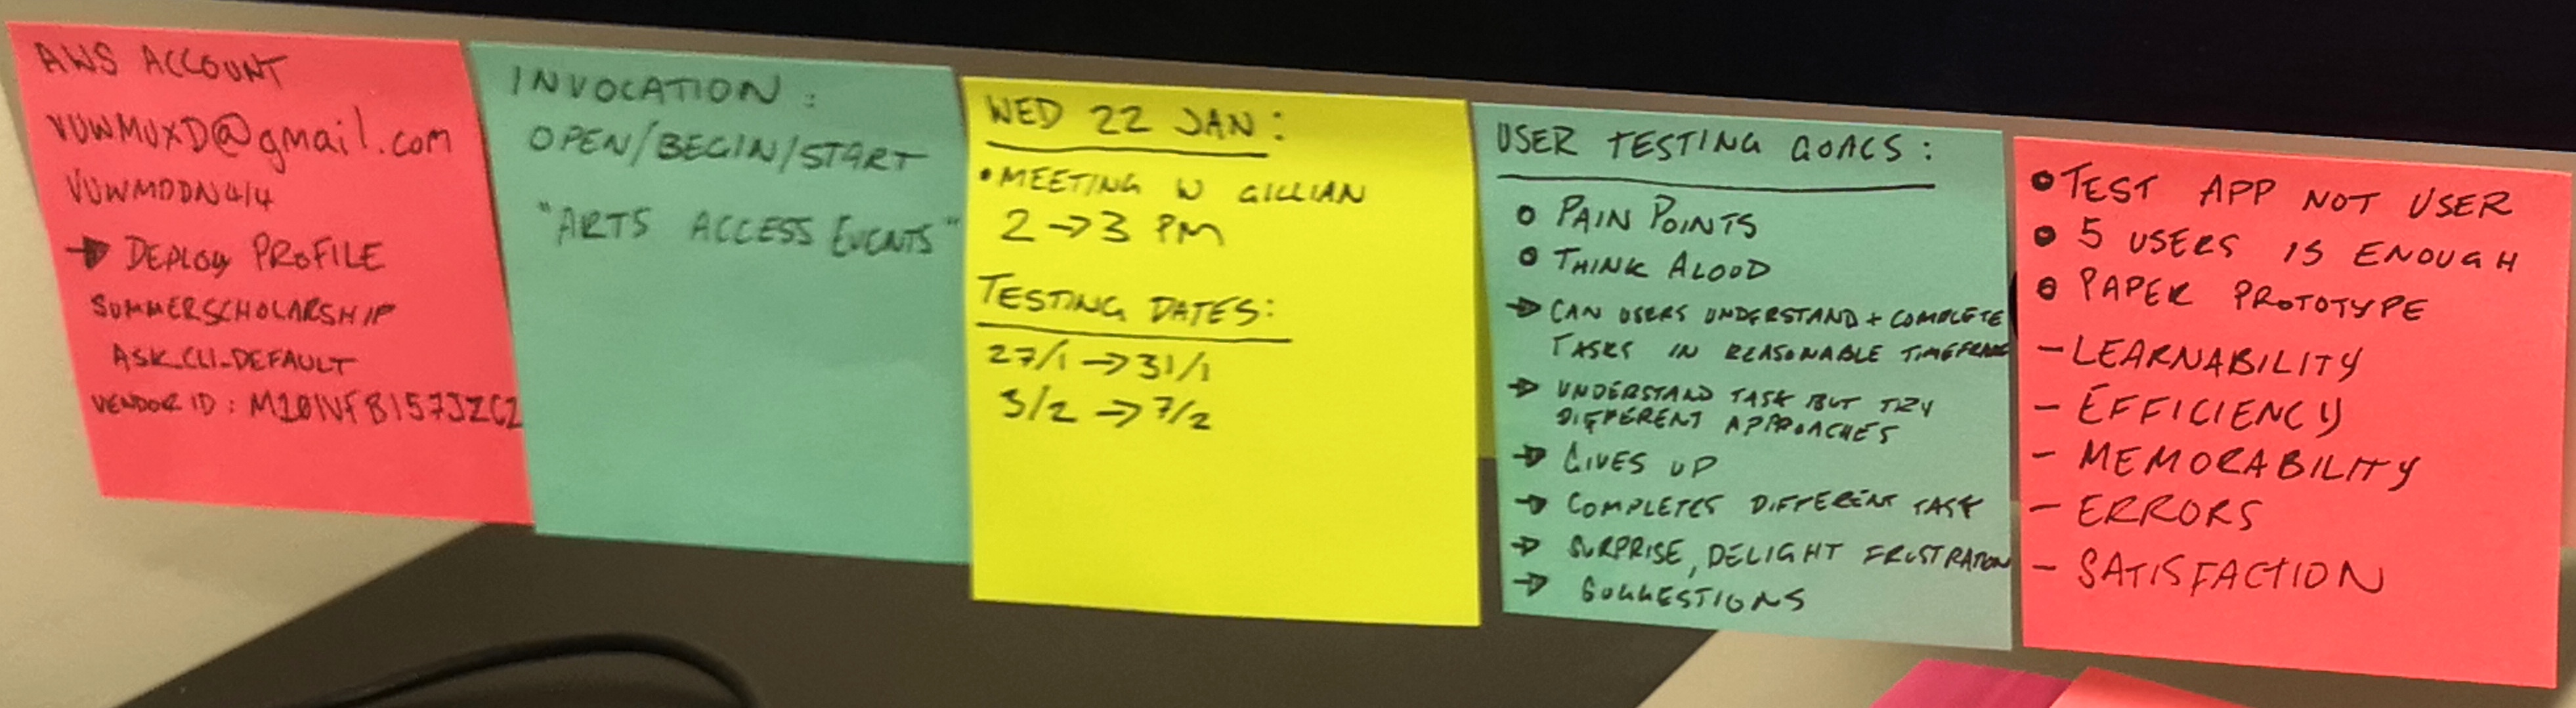 AWS ACCOUNT
VUWMUXD@gmail.com
VUWMDDN414
→ DEPLOY PROFILE
SUMMERSCHOLARSHIP
ASK_CLI_DEFAULT
VENDOR ID:
INVOCATION:
OPEN/BEGIN/START
"ARTS ACCESS EVENTS"
WED 22 JAN:
• MEETING W GILLIAN
2 → 3 PM
TESTING DATES:
27/1 → 31/1
3/2 → 7/2
USER TESTING GOALS:
• PAIN POINTS
• THINK ALOUD
→ CAN USERS UNDERSTAND + COMPLETE
TASKS IN REASONABLE TIMEFRAME
→ UNDERSTAND TASK BUT TRY
DIFFERENT APPROACHES
→ GIVES UP
→ COMPLETES DIFFERENT TASK
→ SURPRISE, DELIGHT FRUSTRATION
→ SUGGESTIONS
• TEST APP NOT USER
• 5 USERS IS ENOUGH
• PAPER PROTOTYPE
- LEARNABILITY
- EFFICIENCY
- MEMORABILITY
- ERRORS
- SATISFACTION